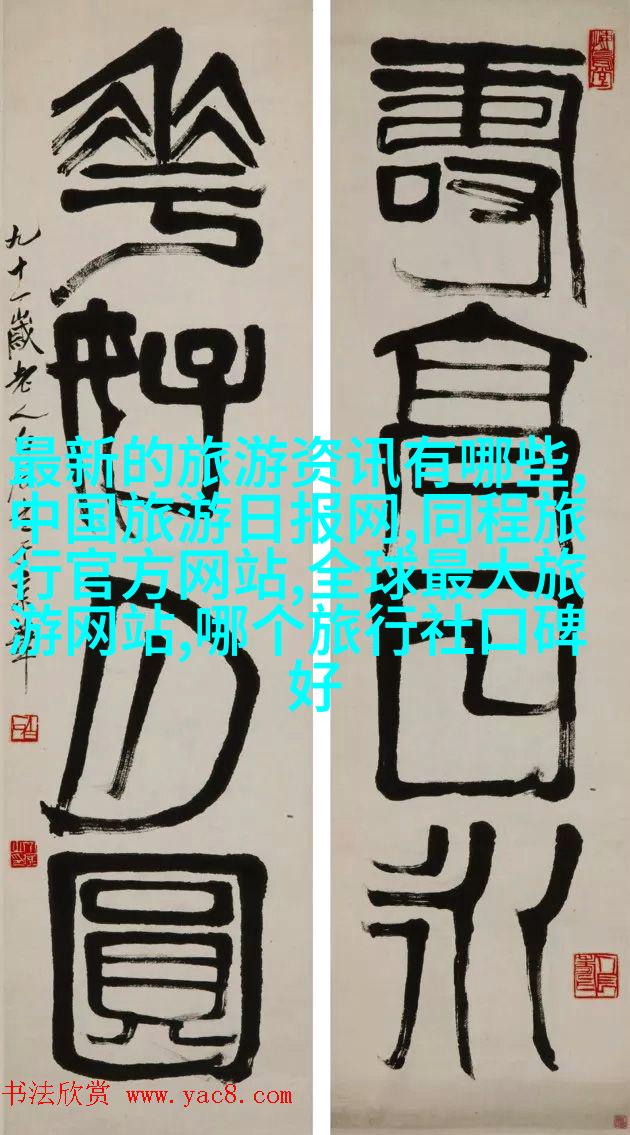 壽高日永
華好月圓
九十一歲老人
最新的旅游资讯有哪些,
中国旅游日报网,同程旅
行官方网站,全球最大旅
游网站,哪个旅行社口碑
好
书法欣赏 www.yac8.com